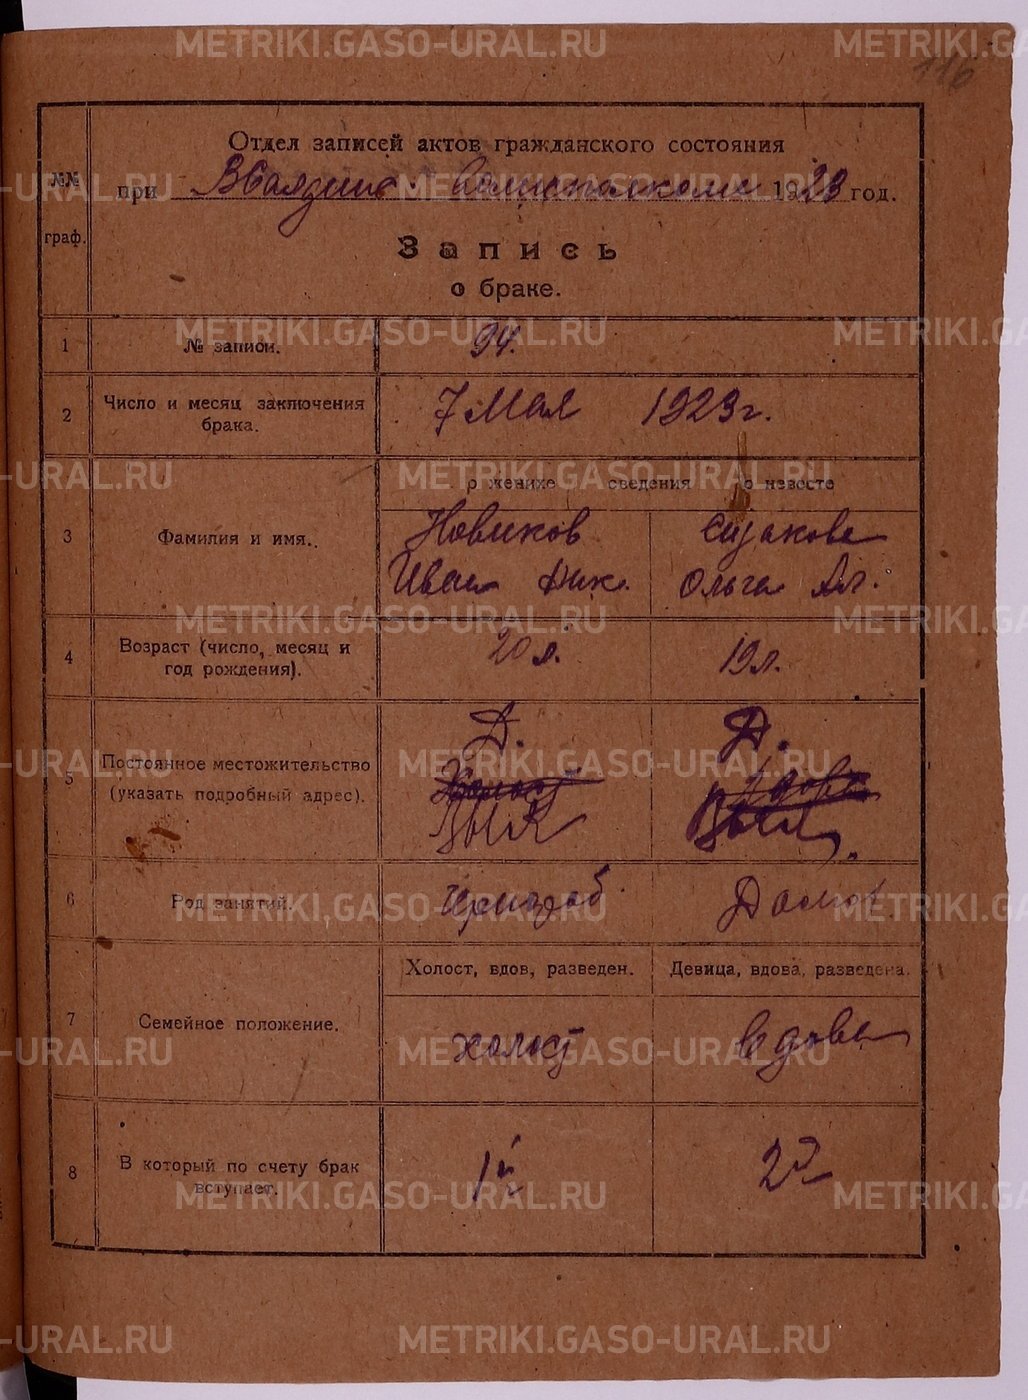 116
Отдел записей актов гражданского состояния
при Волисполкоме 1923 год.
№№
граф.
Запись
о браке.
1 № записи. 94.
2 Число и месяц заключения
брака.
7 Мая 1923 г.
о женихе сведения о невесте
3 Фамилия и имя.
Новиков
Иван Ник. Ольга Ал.
4 Возраст (число, месяц и
год рождения).
20 л. 19 л.
5 Постоянное местожительство
(указать подробный адрес).
Д. Д.
6 Род занятий.
Домох
Холост, вдов, разведен. Девица, вдова, разведена.
7 Семейное положение.
холост вдова
8 В который по счету брак
вступает.
1й 2й
METRIKI.GASO-URAL.RU